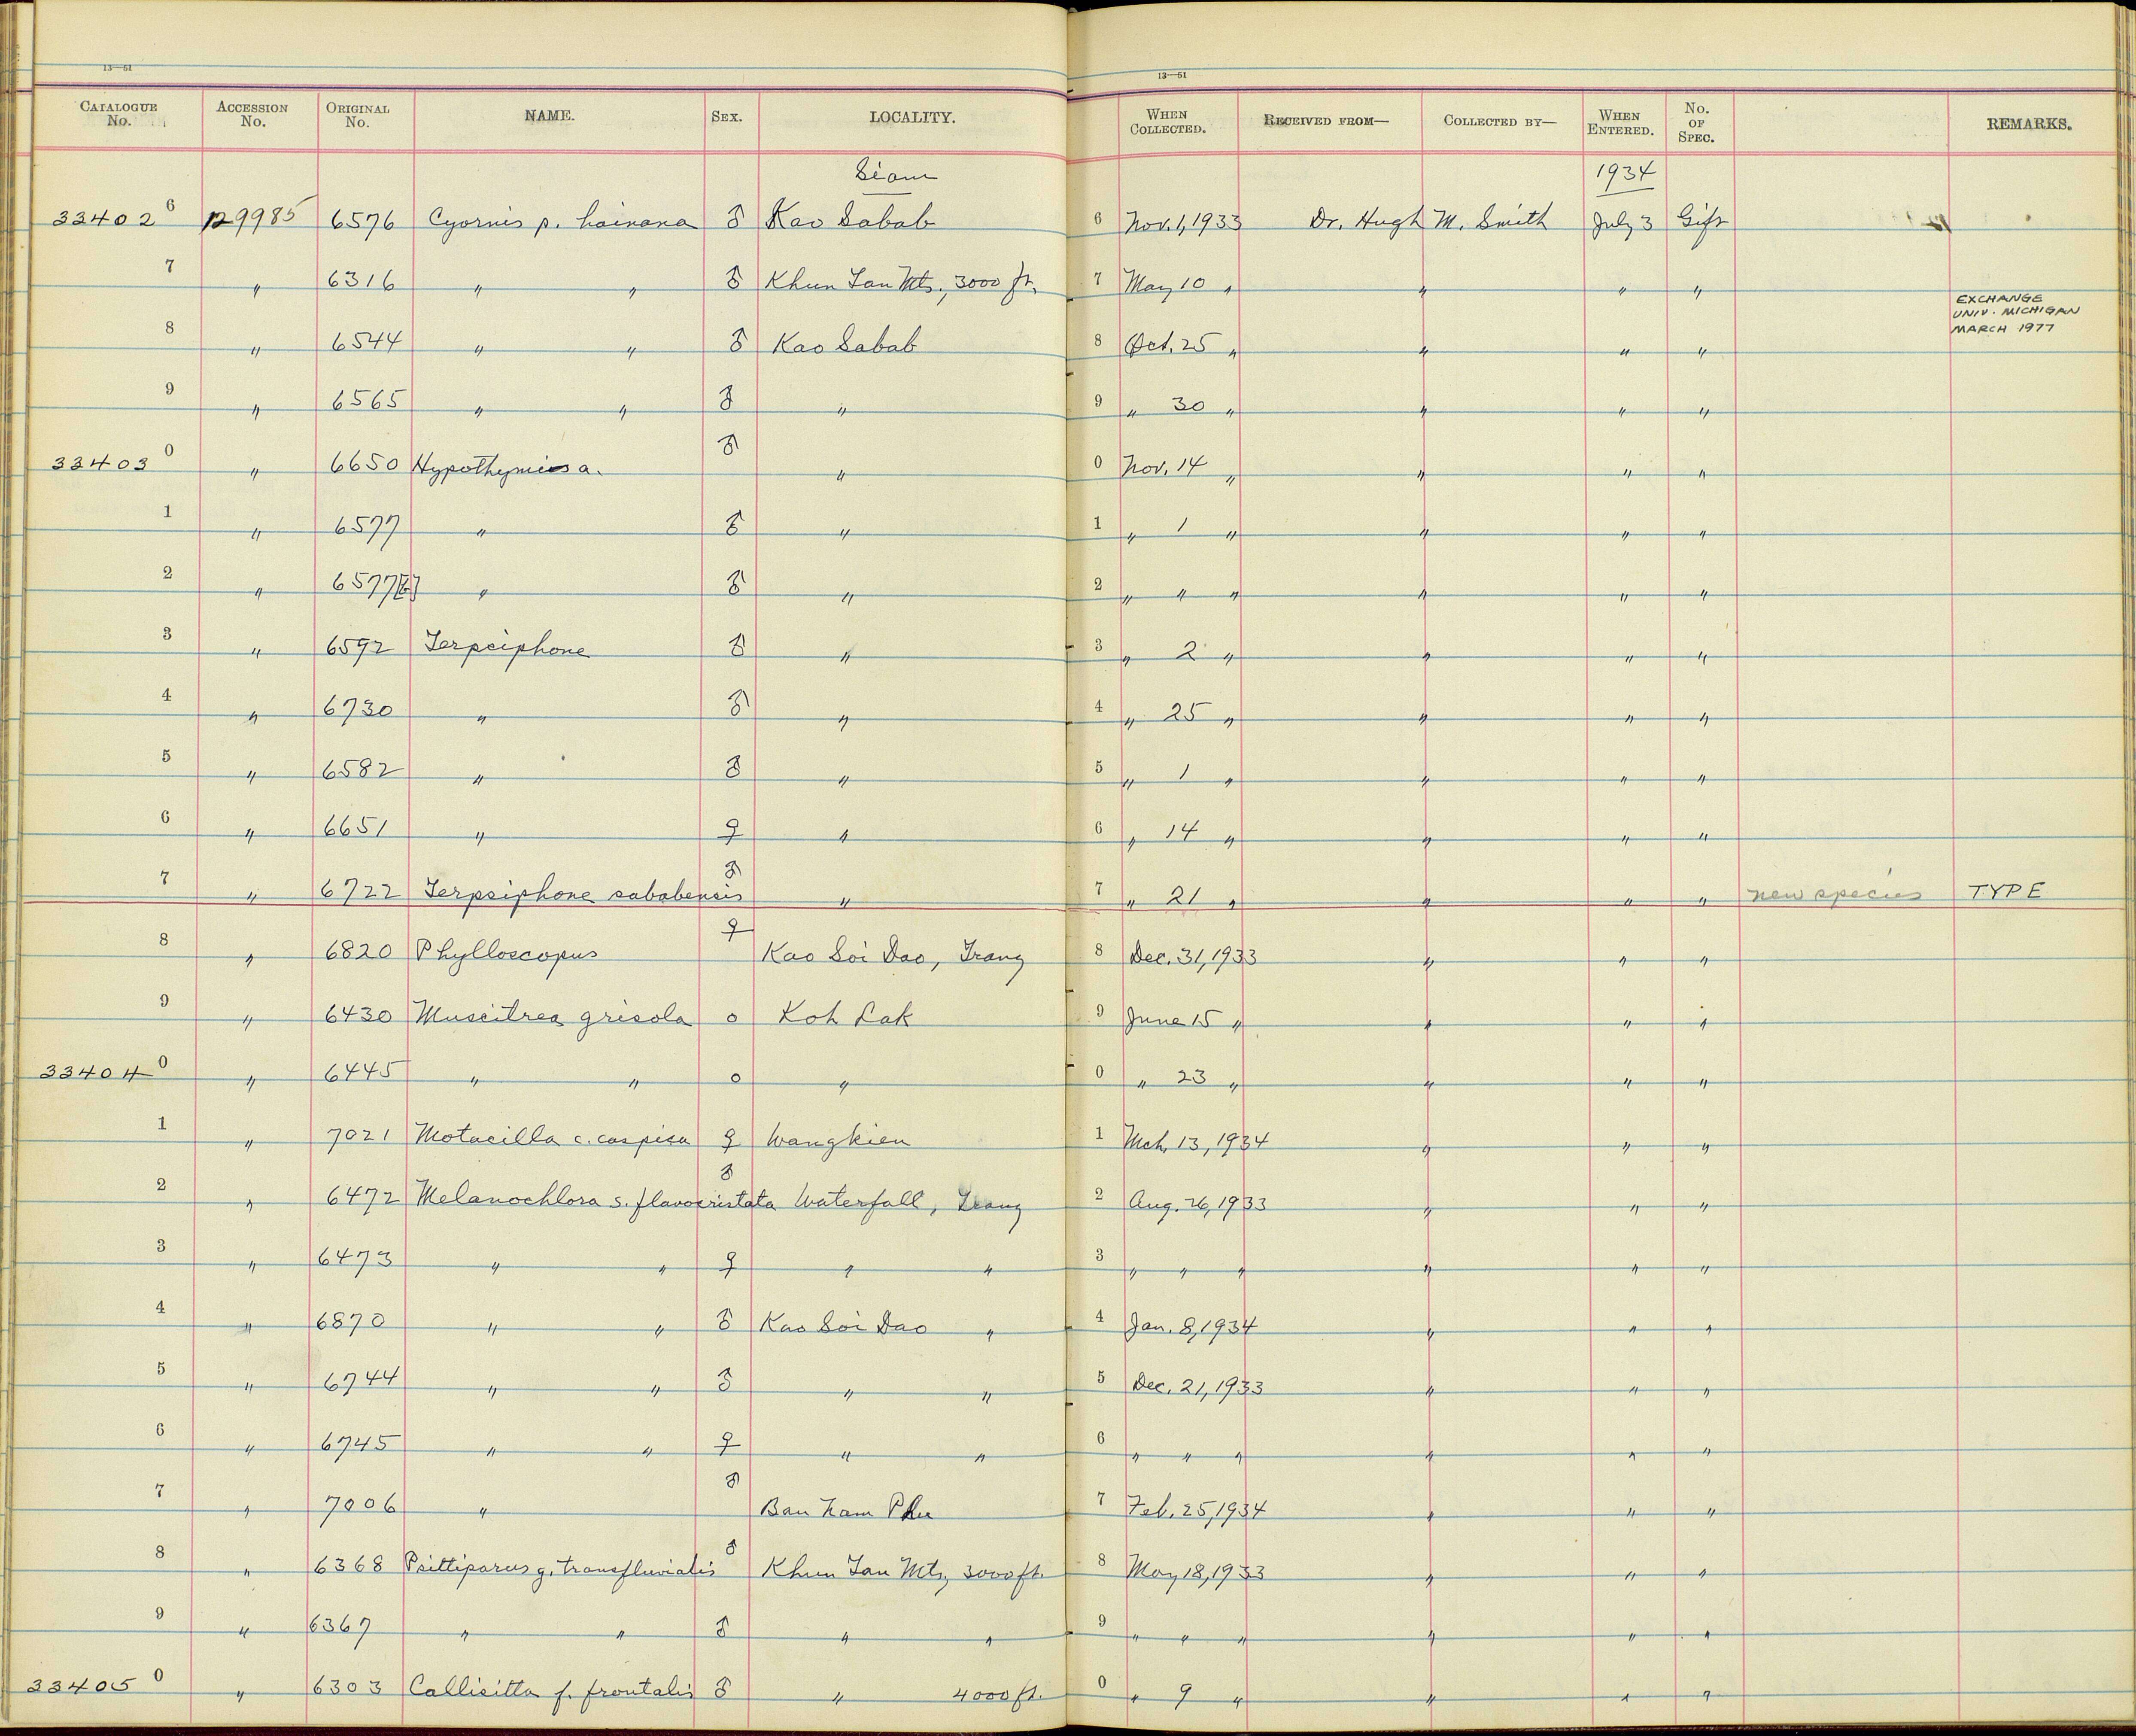 13—51
13—51
CATALOGUE No. ACCESSION No. ORIGINAL No. NAME. SEX. LOCALITY. WHEN COLLECTED. RECEIVED FROM— COLLECTED BY— WHEN ENTERED. No. OF SPEC. REMARKS.
Siam 1934
33402 6 129985 6576 Cyornis p. hainana ♂ Kao Sabab 6 Nov. 1, 1933 Dr. Hugh M. Smith July 3 Gift
7 " 6316 " " ♂ Khun Tan Mts., 3000 ft. 7 May 10 " " " "
EXCHANGE
UNIV. MICHIGAN
MARCH 1977
8 " 6544 " " ♂ Kao Sabab 8 Oct. 25 " " " "
9 " 6565 " " ♂ " 9 " 30 " " " "
33403 0 " 6650 Hypothymis a. ♂ " 0 Nov. 14 " " " "
1 " 6577 " ♂ " 1 " 1 " " " "
2 " 6577 " ♂ " 2 " " " " " "
3 " 6592 Terpsiphone ♂ " 3 " 2 " " " "
4 " 6730 " ♂ " 4 " 25 " " " "
5 " 6582 " ♂ " 5 " 1 " " " "
6 " 6651 " ♀ " 6 " 14 " " " "
7 " 6722 Terpsiphone sababensis ♂ " 7 " 21 " " " " new species TYPE
8 " 6820 Phylloscopus ♀ Kao Soi Dao, Trang 8 Dec. 31, 1933 " " "
9 " 6430 Muscitrea grisola o Koh Lak 9 June 15 " " " "
33404 0 " 6445 " " o " 0 " 23 " " " "
1 " 7021 Motacilla c. caspica ♀ Wangkien 1 Mch. 13, 1934 " " "
2 " 6472 Melanochlora s. flavocristata ♂ Waterfall, Trang 2 Aug. 26, 1933 " " "
3 " 6473 " " ♀ " " 3 " " " " " "
4 " 6870 " " ♂ Kao Soi Dao " 4 Jan. 8, 1934 " " "
5 " 6744 " " ♂ " " 5 Dec. 21, 1933 " " "
6 " 6745 " " ♀ " " 6 " " " " " "
7 " 7006 " ♂ Ban Nam Phu 7 Feb. 25, 1934 " " "
8 " 6368 Psittiparus g. transfluvialis ♂ Khun Tan Mts, 3000 ft. 8 May 18, 1933 " " "
9 " 6367 " " ♂ " " 9 " " " " " "
33405 0 " 6303 Callisitta f. frontalis ♂ " 4000 ft. 0 " 9 " " " "